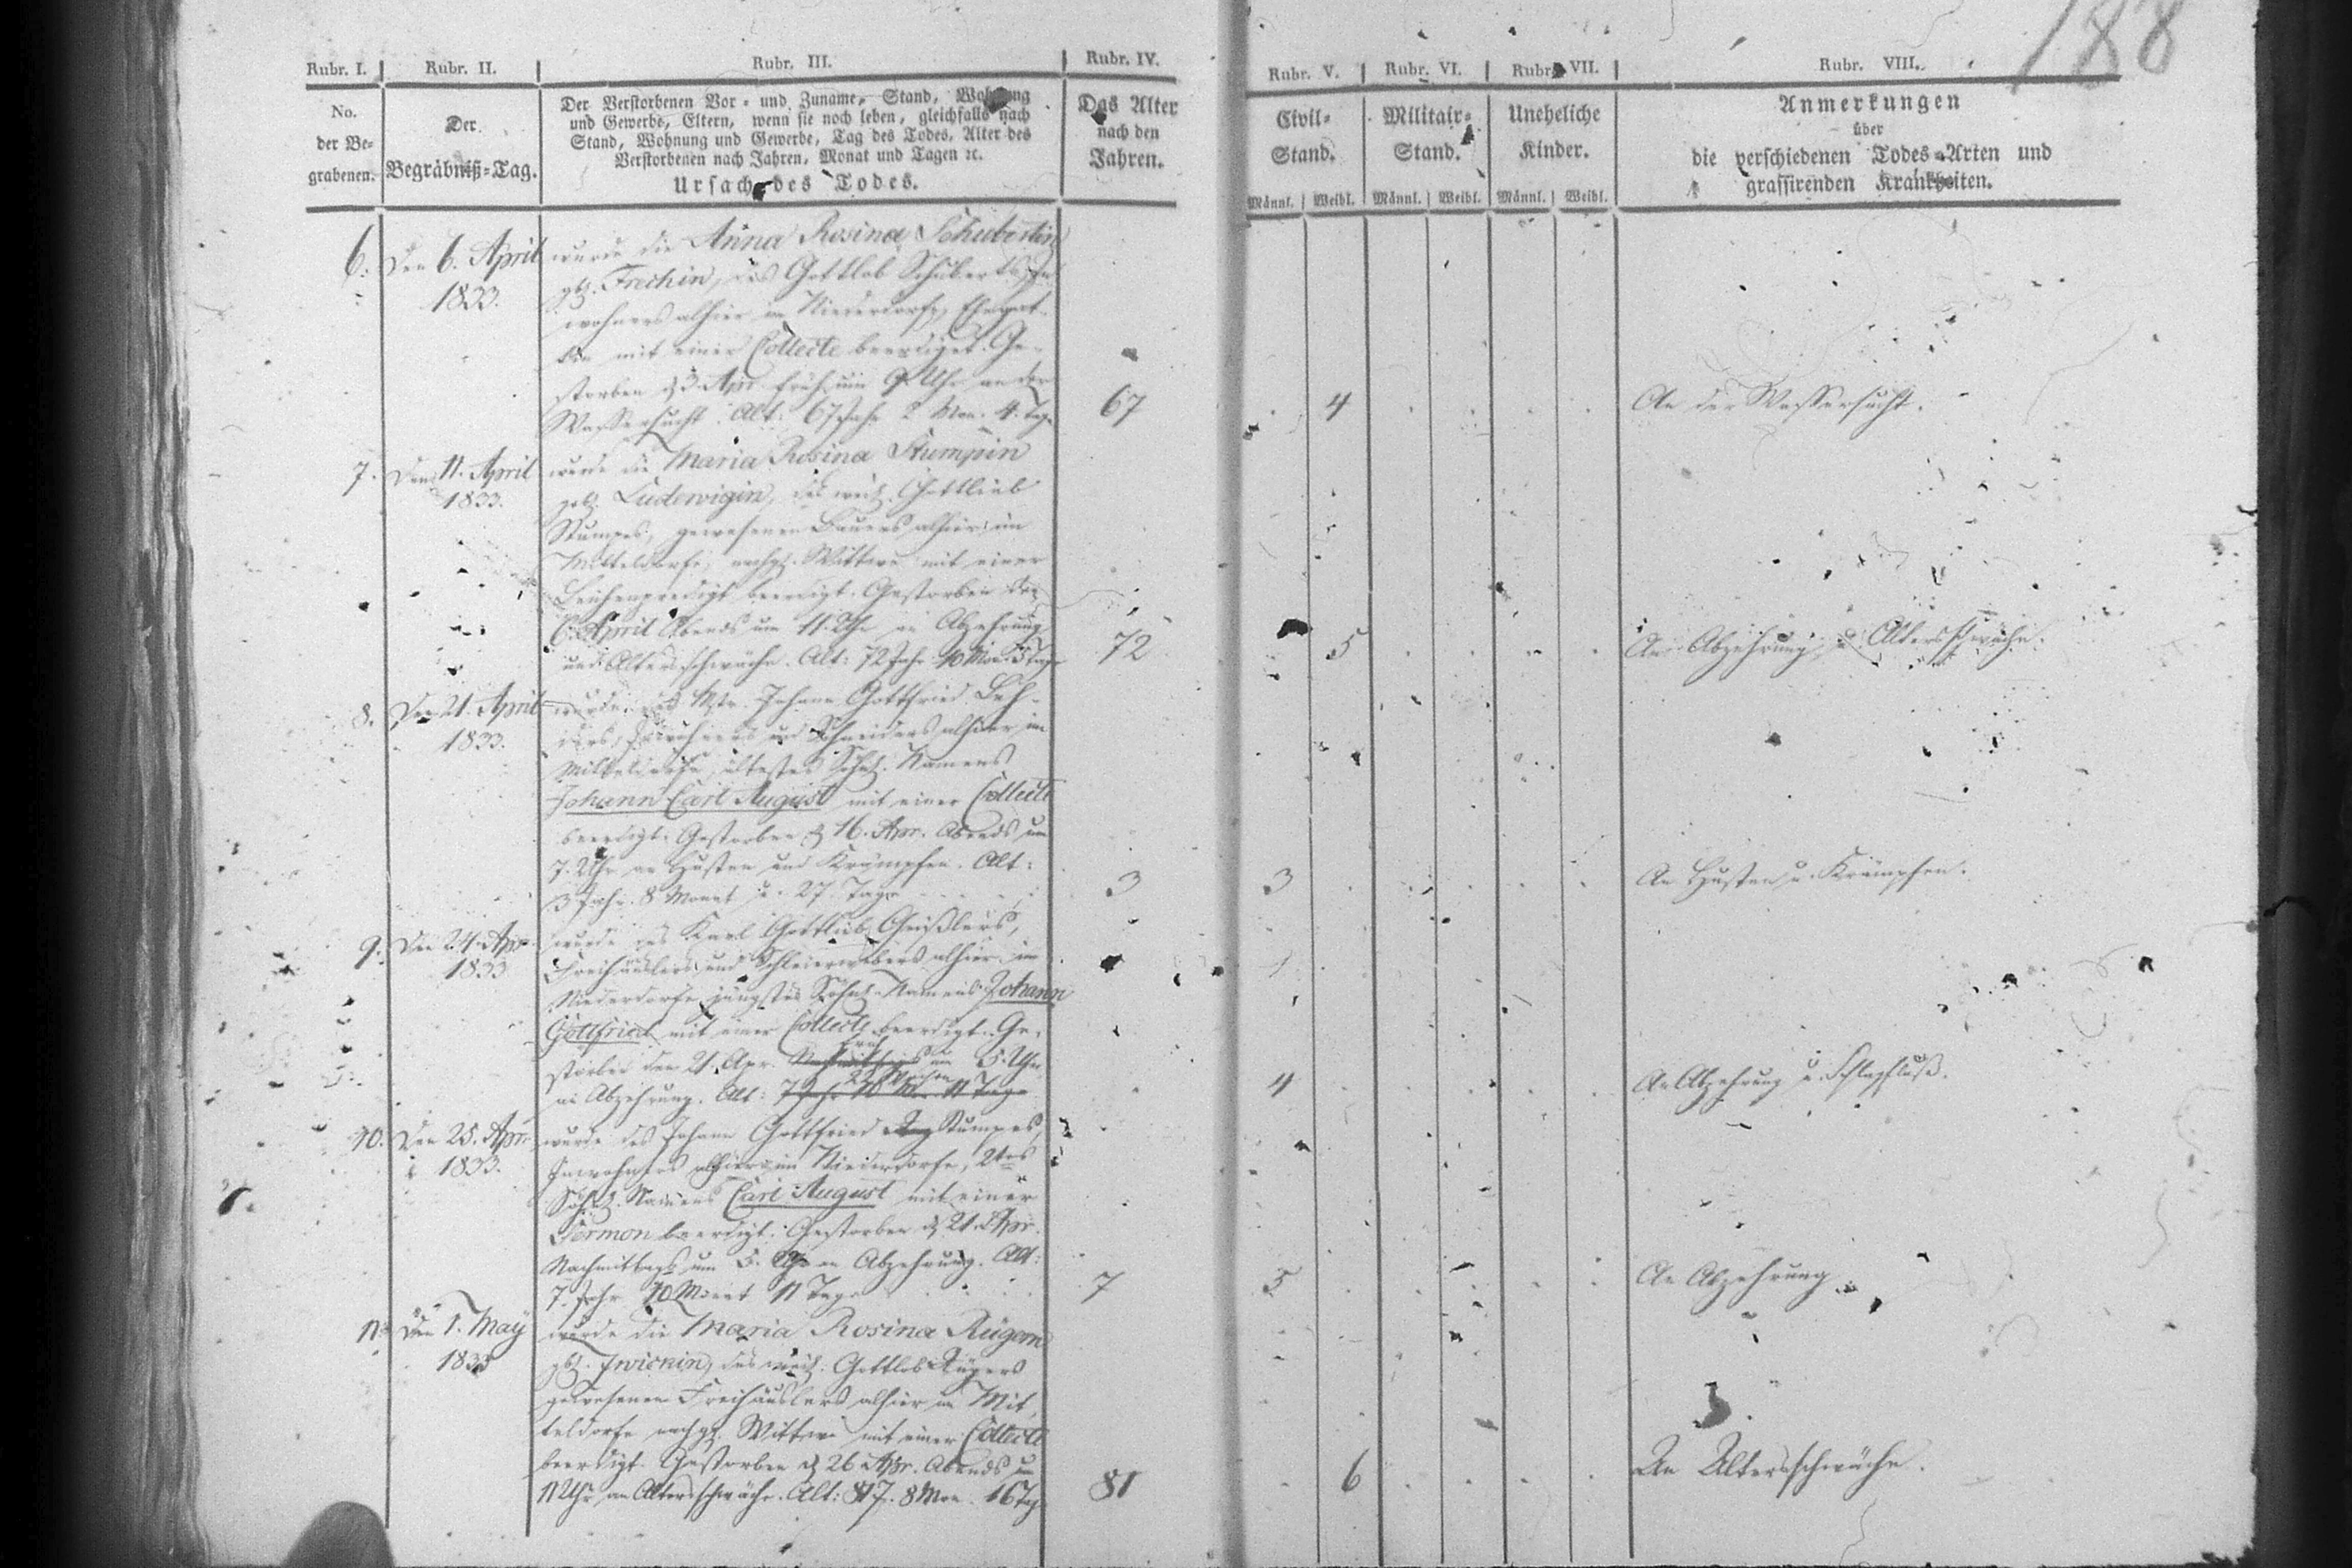 188
Rubr. I. Rubr. II. Rubr. III. Rubr. IV. Rubr. V. Rubr. VI. Rubr. VII. Rubr. VIII.
No.
der Be-
grabenen.
Der
Begräbniß-Tag.
Der Verstorbenen Vor- und Zuname, Stand, Wohnung
und Gewerbe, Eltern, wenn sie noch leben, gleichfalls nach
Stand, Wohnung und Gewerbe, Tag des Todes, Alter des
Verstorbenen nach Jahren, Monat und Tagen ꝛc.
Ursache des Todes.
Das Alter
nach den
Jahren.
Civil-
Stand.
Militair-
Stand.
Uneheliche
Kinder.
Männl. Weibl. Männl. Weibl. Männl. Weibl.
Anmerkungen
über
die verschiedenen Todes-Arten und
grassirenden Krankheiten.
6. Den 6. April
1833.
wurde die Anna Rosina Schubertin
gb. Frechin, des Gottlob Schuberts, In-
wohners alhier im Niederdorfe, Ehegat-
tin mit einer Collecte beerdiget. Ge-
storben d. 3. Apr. früh um 9 Uhr an der
Wassersucht. Alt: 67 Jahr 2 Mon. 4. Tage
67 4 An der Wassersucht.
7. Den 11. April
1833.
wurde die Maria Rosina Stumpin
geb. Ludewigin, des weil. Gottlieb
Stumpes, gewesenen Bauers alhier im
Mitteldorfe, nachgel. Wittwe mit einer
Leichenpredigt beerdigt. Gestorben den
6. April Abends um 11. Uhr an Abzehrung
und Altersschwäche. Alt: 72 Jahr 10 Mon. 5 Tage
72 5 An Abzehrung u. Altersschwäche.
8. Den 21. April
1833.
wurde des Mstr. Johann Gottfried
Inwohners und Schneiders alhier im
Mitteldorfe, ältestes Söhnl. Namens
Johann Carl August mit einer Collecte
beerdigt. Gestorben d. 16. Apr. Abends um
7. Uhr an Husten und Krämpfen. Alt:
3 Jahr 8 Monat u. 27. Tage
3 3 An Husten u. Krämpfen.
9. Den 24. Apr.
1833
wurde des Karl Gottlieb Geißlers,
Freihäuslers und Schleierwebers alhier im
Niederdorfe jüngstes Söhnl. Namens Johann
Gottfried mit einer Collecte beerdigt. Ge-
storben den 21. Apr. Nachmittags früh um 5. Uhr
an Abzehrung. Alt: 7 Jahr 10 Mon. 11 Tage Wochen
4 An Abzehrung u. Schlagfluß.
10. Den 25. Apr.
1833.
wurde des Johann Gottfried Stumpes,
Inwohners alhier im Niederdorfe, 2tes
Söhnl. Namens Carl August mit einer
Sermon beerdigt. Gestorben d. 21. Apr.
Nachmittags um 5. Uhr an Abzehrung. Alt:
7. Jahr 10 Monat 11 Tage
7 5 An Abzehrung.
11. Den 1. May
1833
wurde die Maria Rosina Rügern
gb. Zwienin, des weil. Gottlob Rügers
gewesenen Freihäuslers alhier im Mit-
teldorfe nachgel. Wittwe mit einer Collecte
beerdigt. Gestorben d. 26 Apr. Abends um
11 Uhr an Altersschwäche. Alt: 81 J. 8 Mon. 16 Tag
81 6 An Altersschwäche.